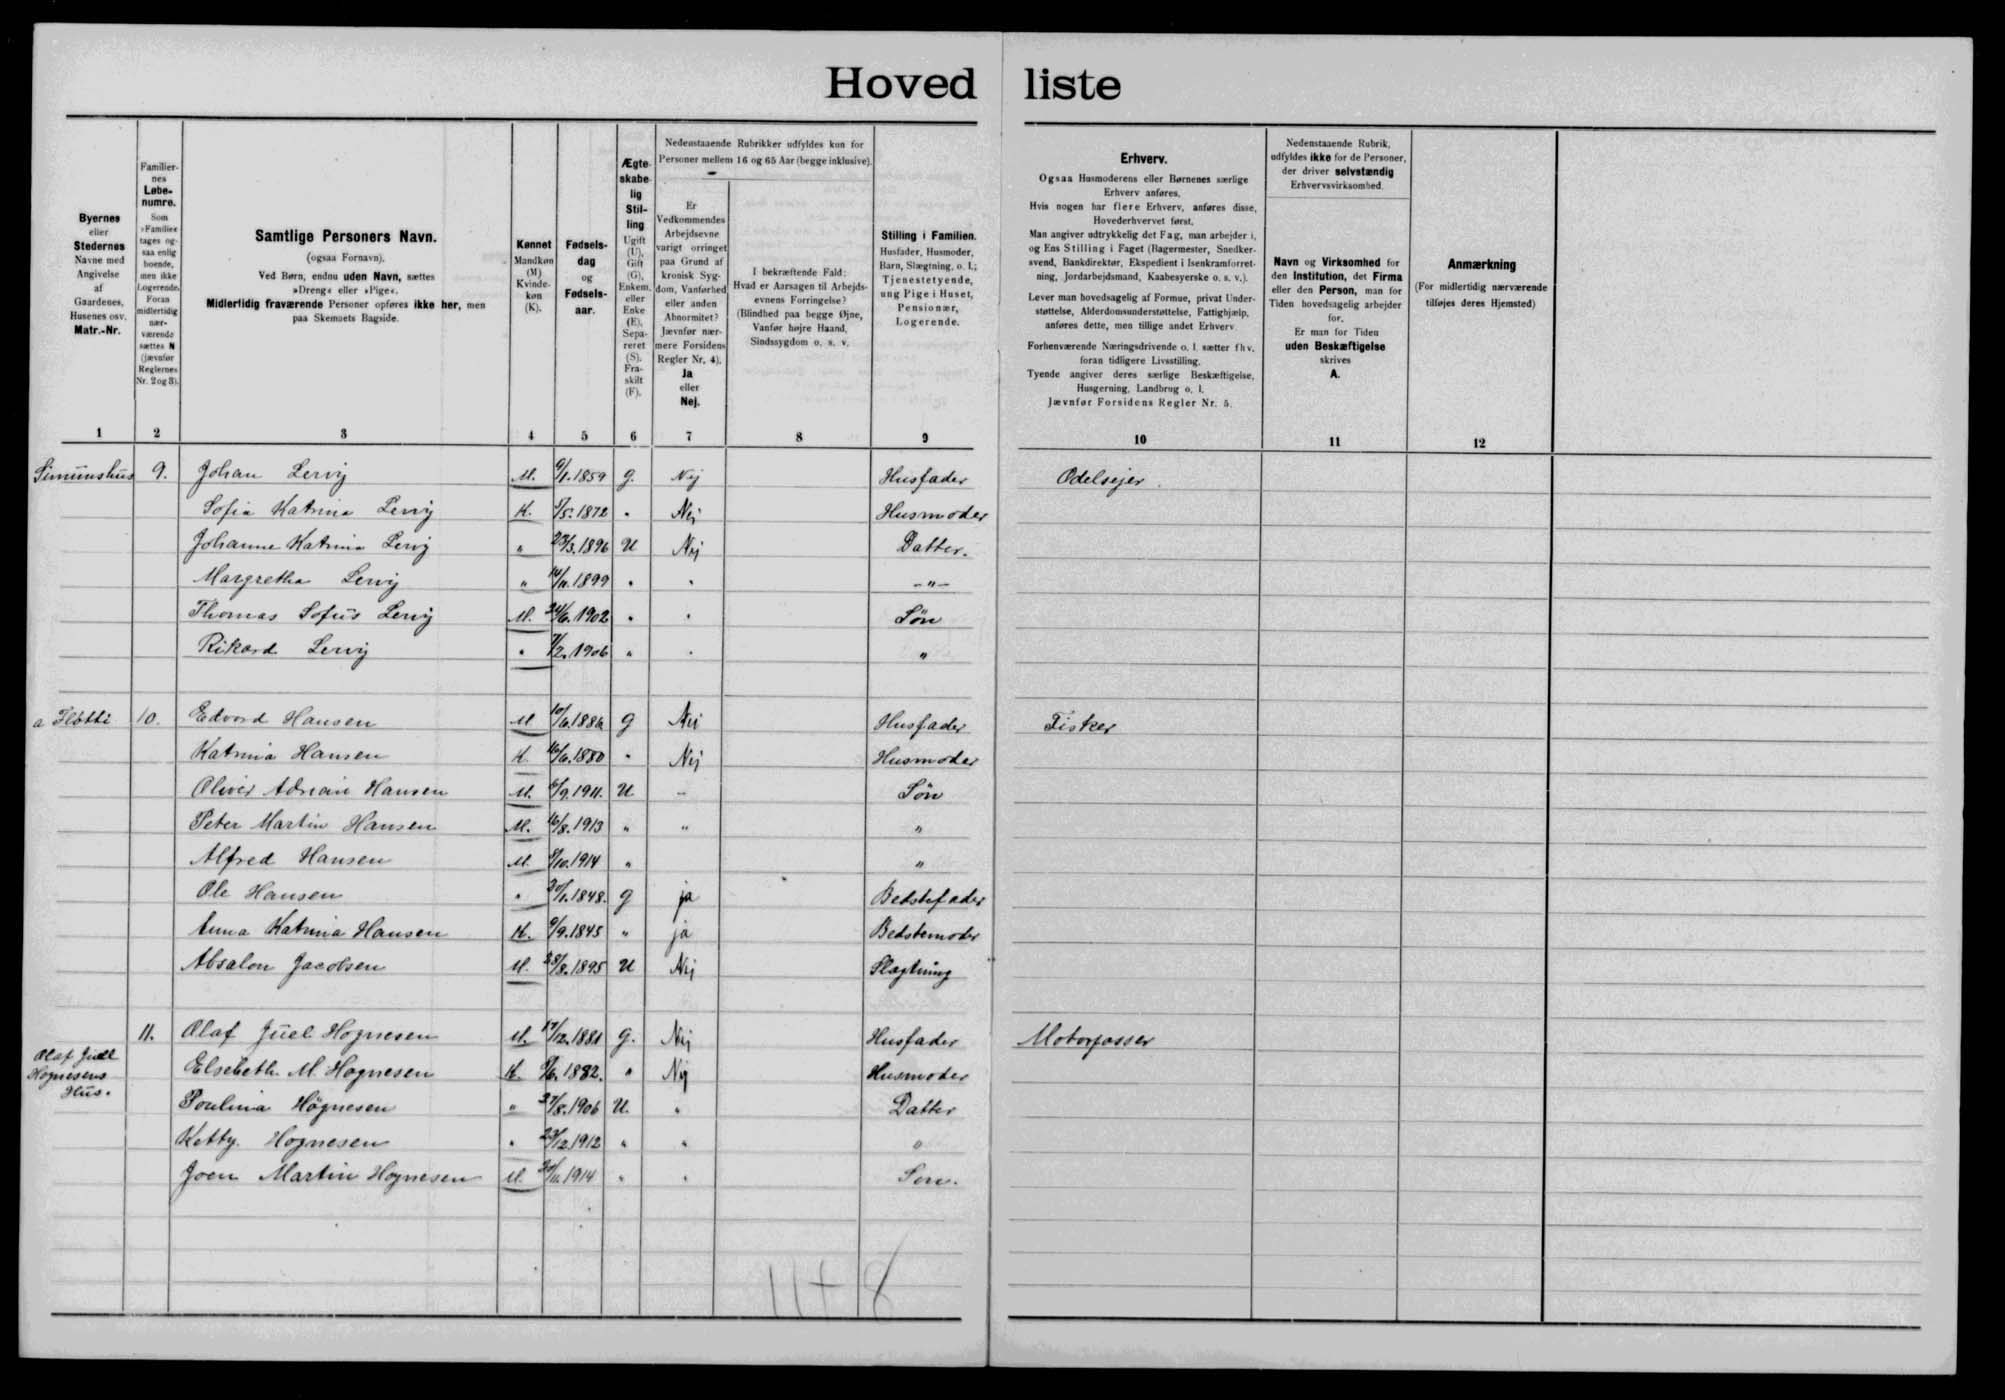 Hovedliste
Byernes eller Stedernes Navne med Angivelse af Gaardenes, Husenes osv. Matr.-Nr.
Familiernes Løbenumre. Som »Familie« tages ogsaa enlig boende, men ikke Logerende. Foran midlertidig nærværende sættes N (jævnfør Reglernes Nr. 2 og 3).
Samtlige Personers Navn. (ogsaa Fornavn). Ved Børn, endnu uden Navn, sættes »Dreng« eller »Pige«. Midlertidig fraværende Personer opføres ikke her, men paa Skemaets Bagside.
Kønnet Mandkøn (M) Kvindekøn (K).
Fødselsdag og Fødselsaar.
Ægteskabelig Stilling Ugift (U), Gift (G), Enkem. eller Enke (E), Separeret (S). Fraskilt (F).
Nedenstaaende Rubrikker udfyldes kun for Personer mellem 16 og 65 Aar (begge inklusive).
Er Vedkommendes Arbejdsevne varigt forringet paa Grund af kronisk Sygdom, Vanførhed eller anden Abnormitet? Jævnfør nærmere Forsidens Regler Nr. 4). Ja eller Nej.
I bekræftende Fald: Hvad er Aarsagen til Arbejdsevnens Forringelse? (Blindhed paa begge Øjne, Vanfør højre Haand, Sindssygdom o. s. v.
Stilling i Familien. Husfader, Husmoder, Barn, Slægtning, o. l.; Tjenestetyende, ung Pige i Huset, Pensionær, Logerende.
Erhverv.
Ogsaa Husmoderens eller Børnenes særlige Erhverv anføres.
Hvis nogen har flere Erhverv, anføres disse, Hovederhvervet først.
Man angiver udtrykkelig det Fag, man arbejder i, og Ens Stilling i Faget (Bagermester, Snedkersvend, Bankdirektør, Ekspedient i Isenkramforretning, Jordarbejdsmand, Kaabesyerske o. s. v.).
Lever man hovedsagelig af Formue, privat Understøttelse, Alderdomsunderstøttelse, Fattighjælp, anføres dette, men tillige andet Erhverv
Forhenværende Næringsdrivende o. l. sætter fhv. foran tidligere Livsstilling.
Tyende angiver deres særlige Beskæftigelse, Husgerning, Landbrug o. l.
Jævnfør Forsidens Regler Nr. 5.
Nedenstaaende Rubrik, udfyldes ikke for de Personer, der driver selvstændig Erhvervsvirksomhed.
Navn og Virksomhed for den Institution, det Firma eller den Person, man for Tiden hovedsagelig arbejder for.
Er man for Tiden uden Beskæftigelse skrives A.
Anmærkning (For midlertidig nærværende tilføjes deres Hjemsted)
1 2 3 4 5 6 7 8 9 10 11 12
Simunshus 9. Johan Lervig M. 6/1.1859 g. Nej Husfader Odelsejer.
Sofia Katrina Lervig K. /5.1872 " Nej Husmoder
Johanne Katrina Lervig " 23/3.1896 U Nej Datter.
Margretha Lervig " 14/11.1899 " " -"-
Thomas Sofus Lervig M. 24/6.1902 " " Søn
Rikard Lervig " 7/2.1906 " " "
a Fløtti 10. Edvard Hansen M 10/6.1886 g Nei Husfader Fisker
Katrina Hansen K. 16/6.1880 " Nej Husmoder
Oliver Adrian Hansen M. 6/9.1911. U. " Søn
Peter Martin Hansen M. 16/8.1913 " " "
Alfred Hansen M. 8/10.1914 " "
Ole Hansen " 30/1.1848. g ja Bedstefader
Anna Katrina Hansen K. 9/9.1845 " ja Bedstemoder
Absalon Jacobsen M. 28/8.1895 U Nej Slægtning
11. Olaf Juel Hognesen M. 17/12.1881 g. Nej Husfader Motorpasser
Olaf Juel Hognesens Hus.
Elsebeth M. Hognesen K. 8/6.1882. " Nej Husmoder
Poulina Högnesen " 27/8.1906 U. " Datter
Ketty. Hognesen " 23/12.1912 " " "
Joen Martin Hognesen M. 30/11.1914 " " Søn.
11+8